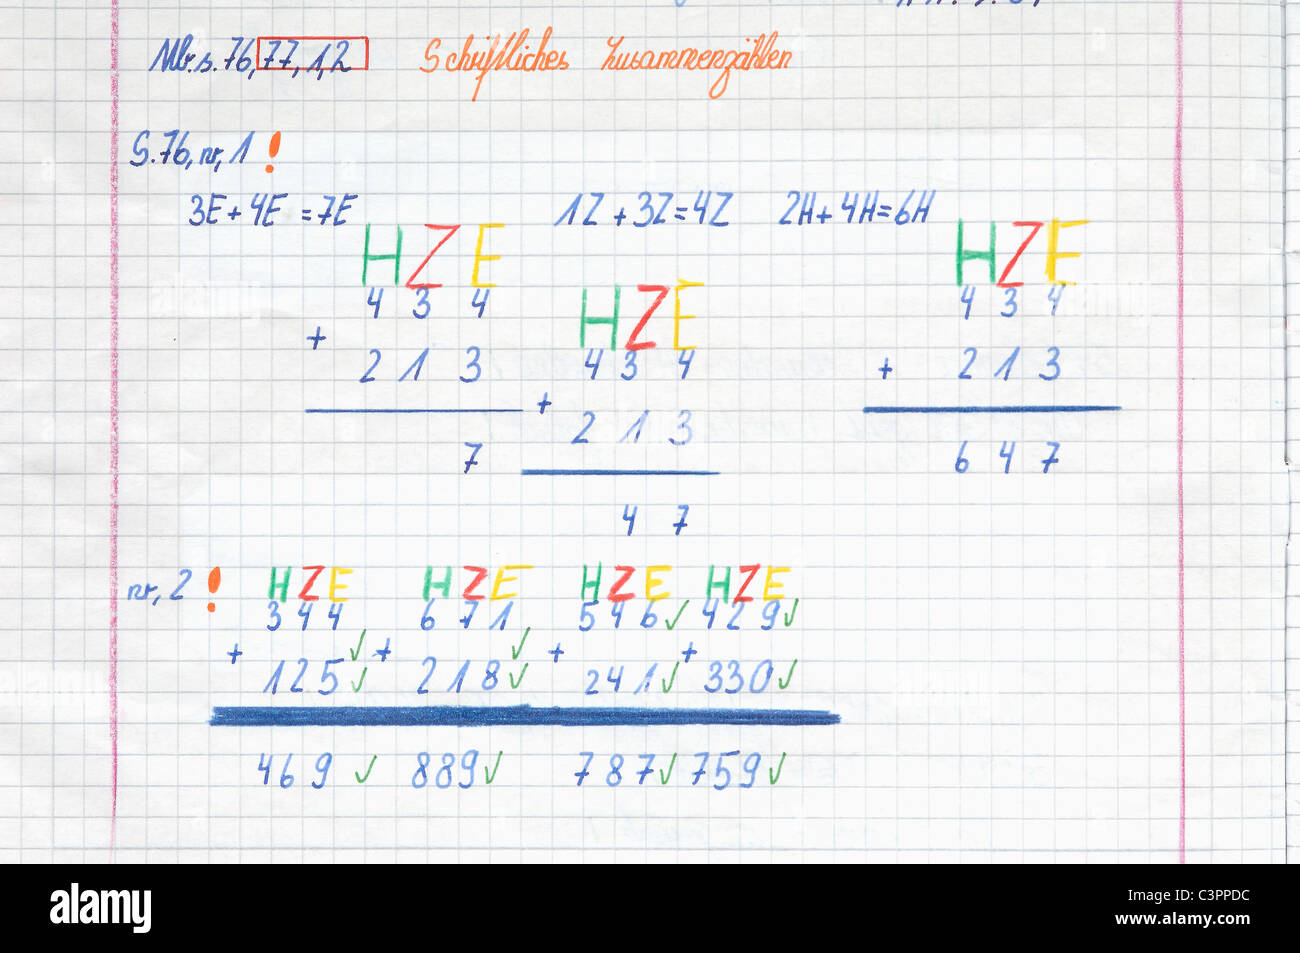 Mb.s.76, 77, 1, 2 Schriftliches Zusammenzählen
S.76, nr, 1 !
3E + 4E = 7E 1Z + 3Z = 4Z 2H + 4H = 6H
H Z E
4 3 4
+
2 1 3
7
H Z E
4 3 4
+
2 1 3
4 7
H Z E
4 3 4
+ 2 1 3
6 4 7
nr, 2 ! H Z E H Z E H Z E H Z E
3 4 4 6 7 1 5 4 6 ✓ 4 2 9 ✓
+ ✓ + ✓ + +
1 2 5 ✓ 2 1 8 ✓ 2 4 1 ✓ 3 3 0 ✓
4 6 9 ✓ 8 8 9 ✓ 7 8 7 ✓ 7 5 9 ✓
alamy
Image ID: C3PPDC
www.alamy.com